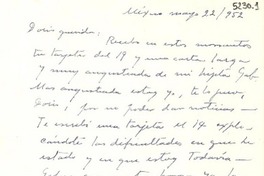 5230.1
México mayo 22/952
Doris querida: 
Recibo en estos momentos
tu tarjeta del 19 y una carta larga
y muy angustiada de mi hijita Gab.
Mas angustiada estoy yo, te lo juro,
Doris, por no poder dar noticias -
Te escribí una tarjeta el 14 expli-
cándote las dificultades en que he
estado y en que estoy Todavía -